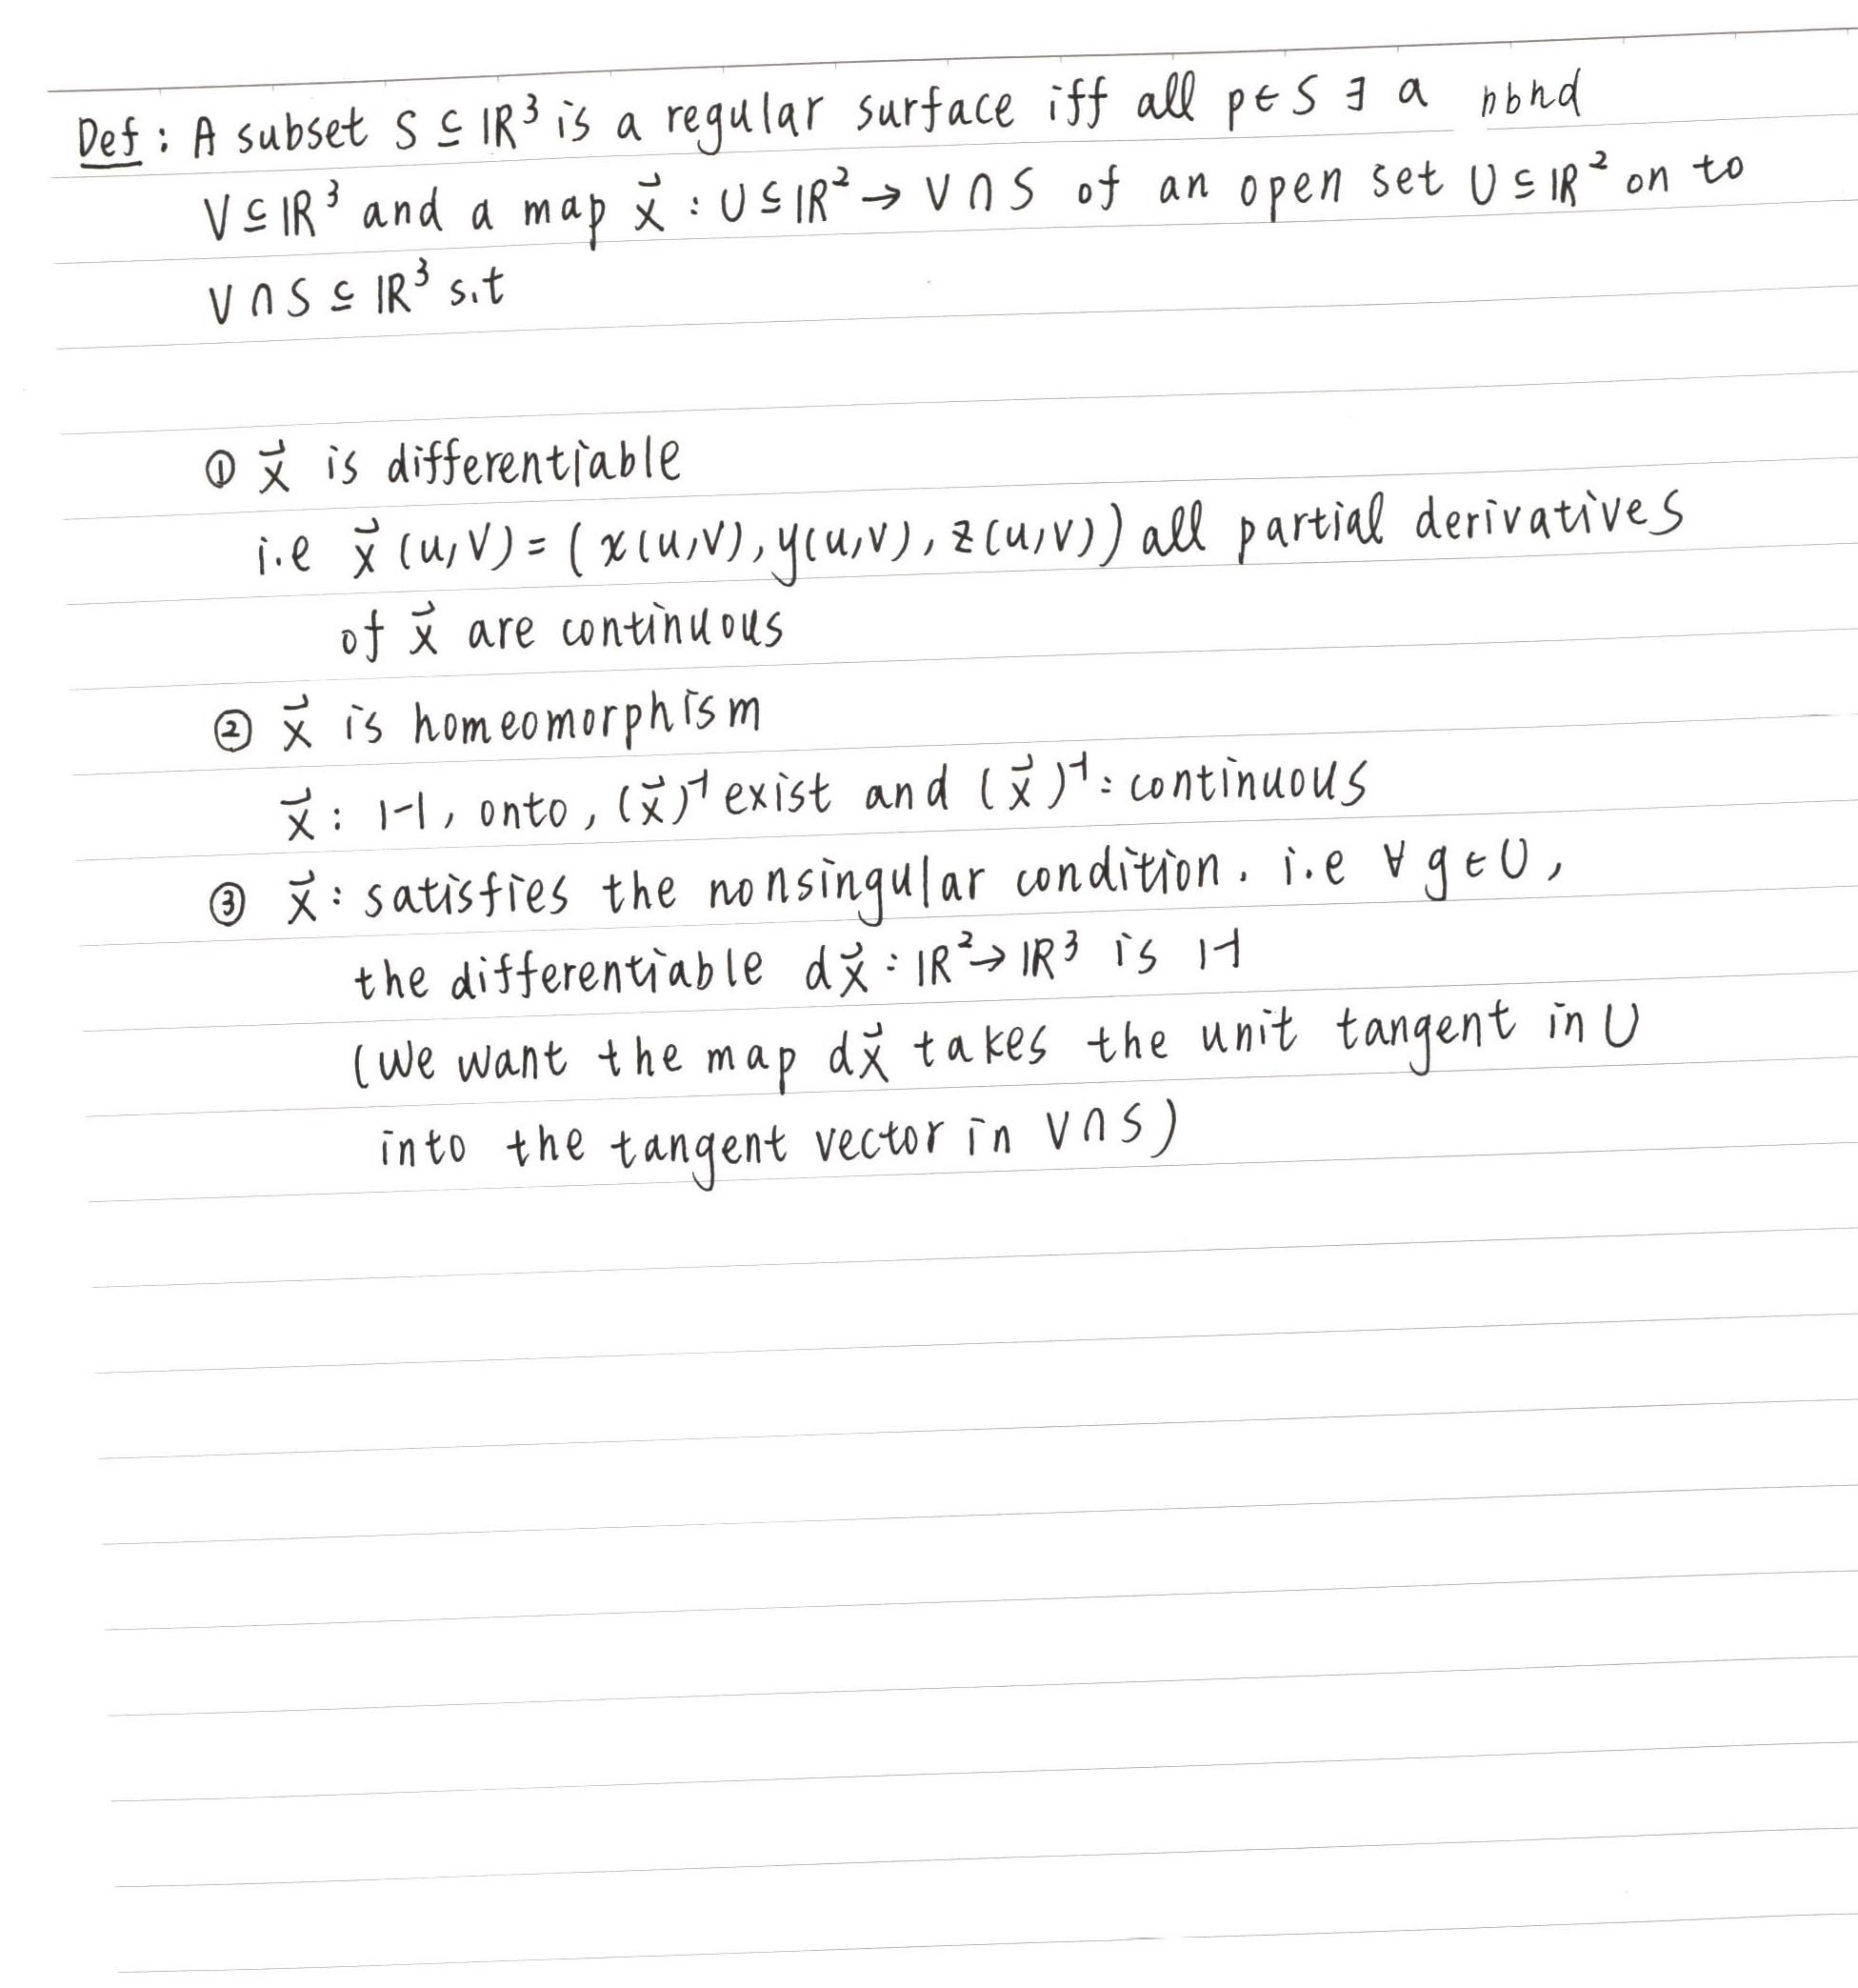 Def : A subset S ⊆ ℝ³ is a regular surface iff all p ∈ S ∃ a nbhd
V ⊆ ℝ³ and a map x⃗ : U ⊆ ℝ² → V ∩ S of an open set U ⊆ ℝ² on to
V ∩ S ⊆ ℝ³ s.t
① x⃗ is differentiable
i.e x⃗ (u,v) = ( x(u,v), y(u,v), z(u,v)) all partial derivatives
of x⃗ are continuous
② x⃗ is homeomorphism
x⃗ : 1-1, onto, (x⃗)⁻¹ exist and (x⃗)⁻¹ : continuous
③ x⃗ : satisfies the nonsingular condition. i.e ∀ g ∈ U,
the differentiable dx⃗ : ℝ² → ℝ³ is 1-1
(We want the map dx⃗ takes the unit tangent in U
into the tangent vector in V ∩ S)